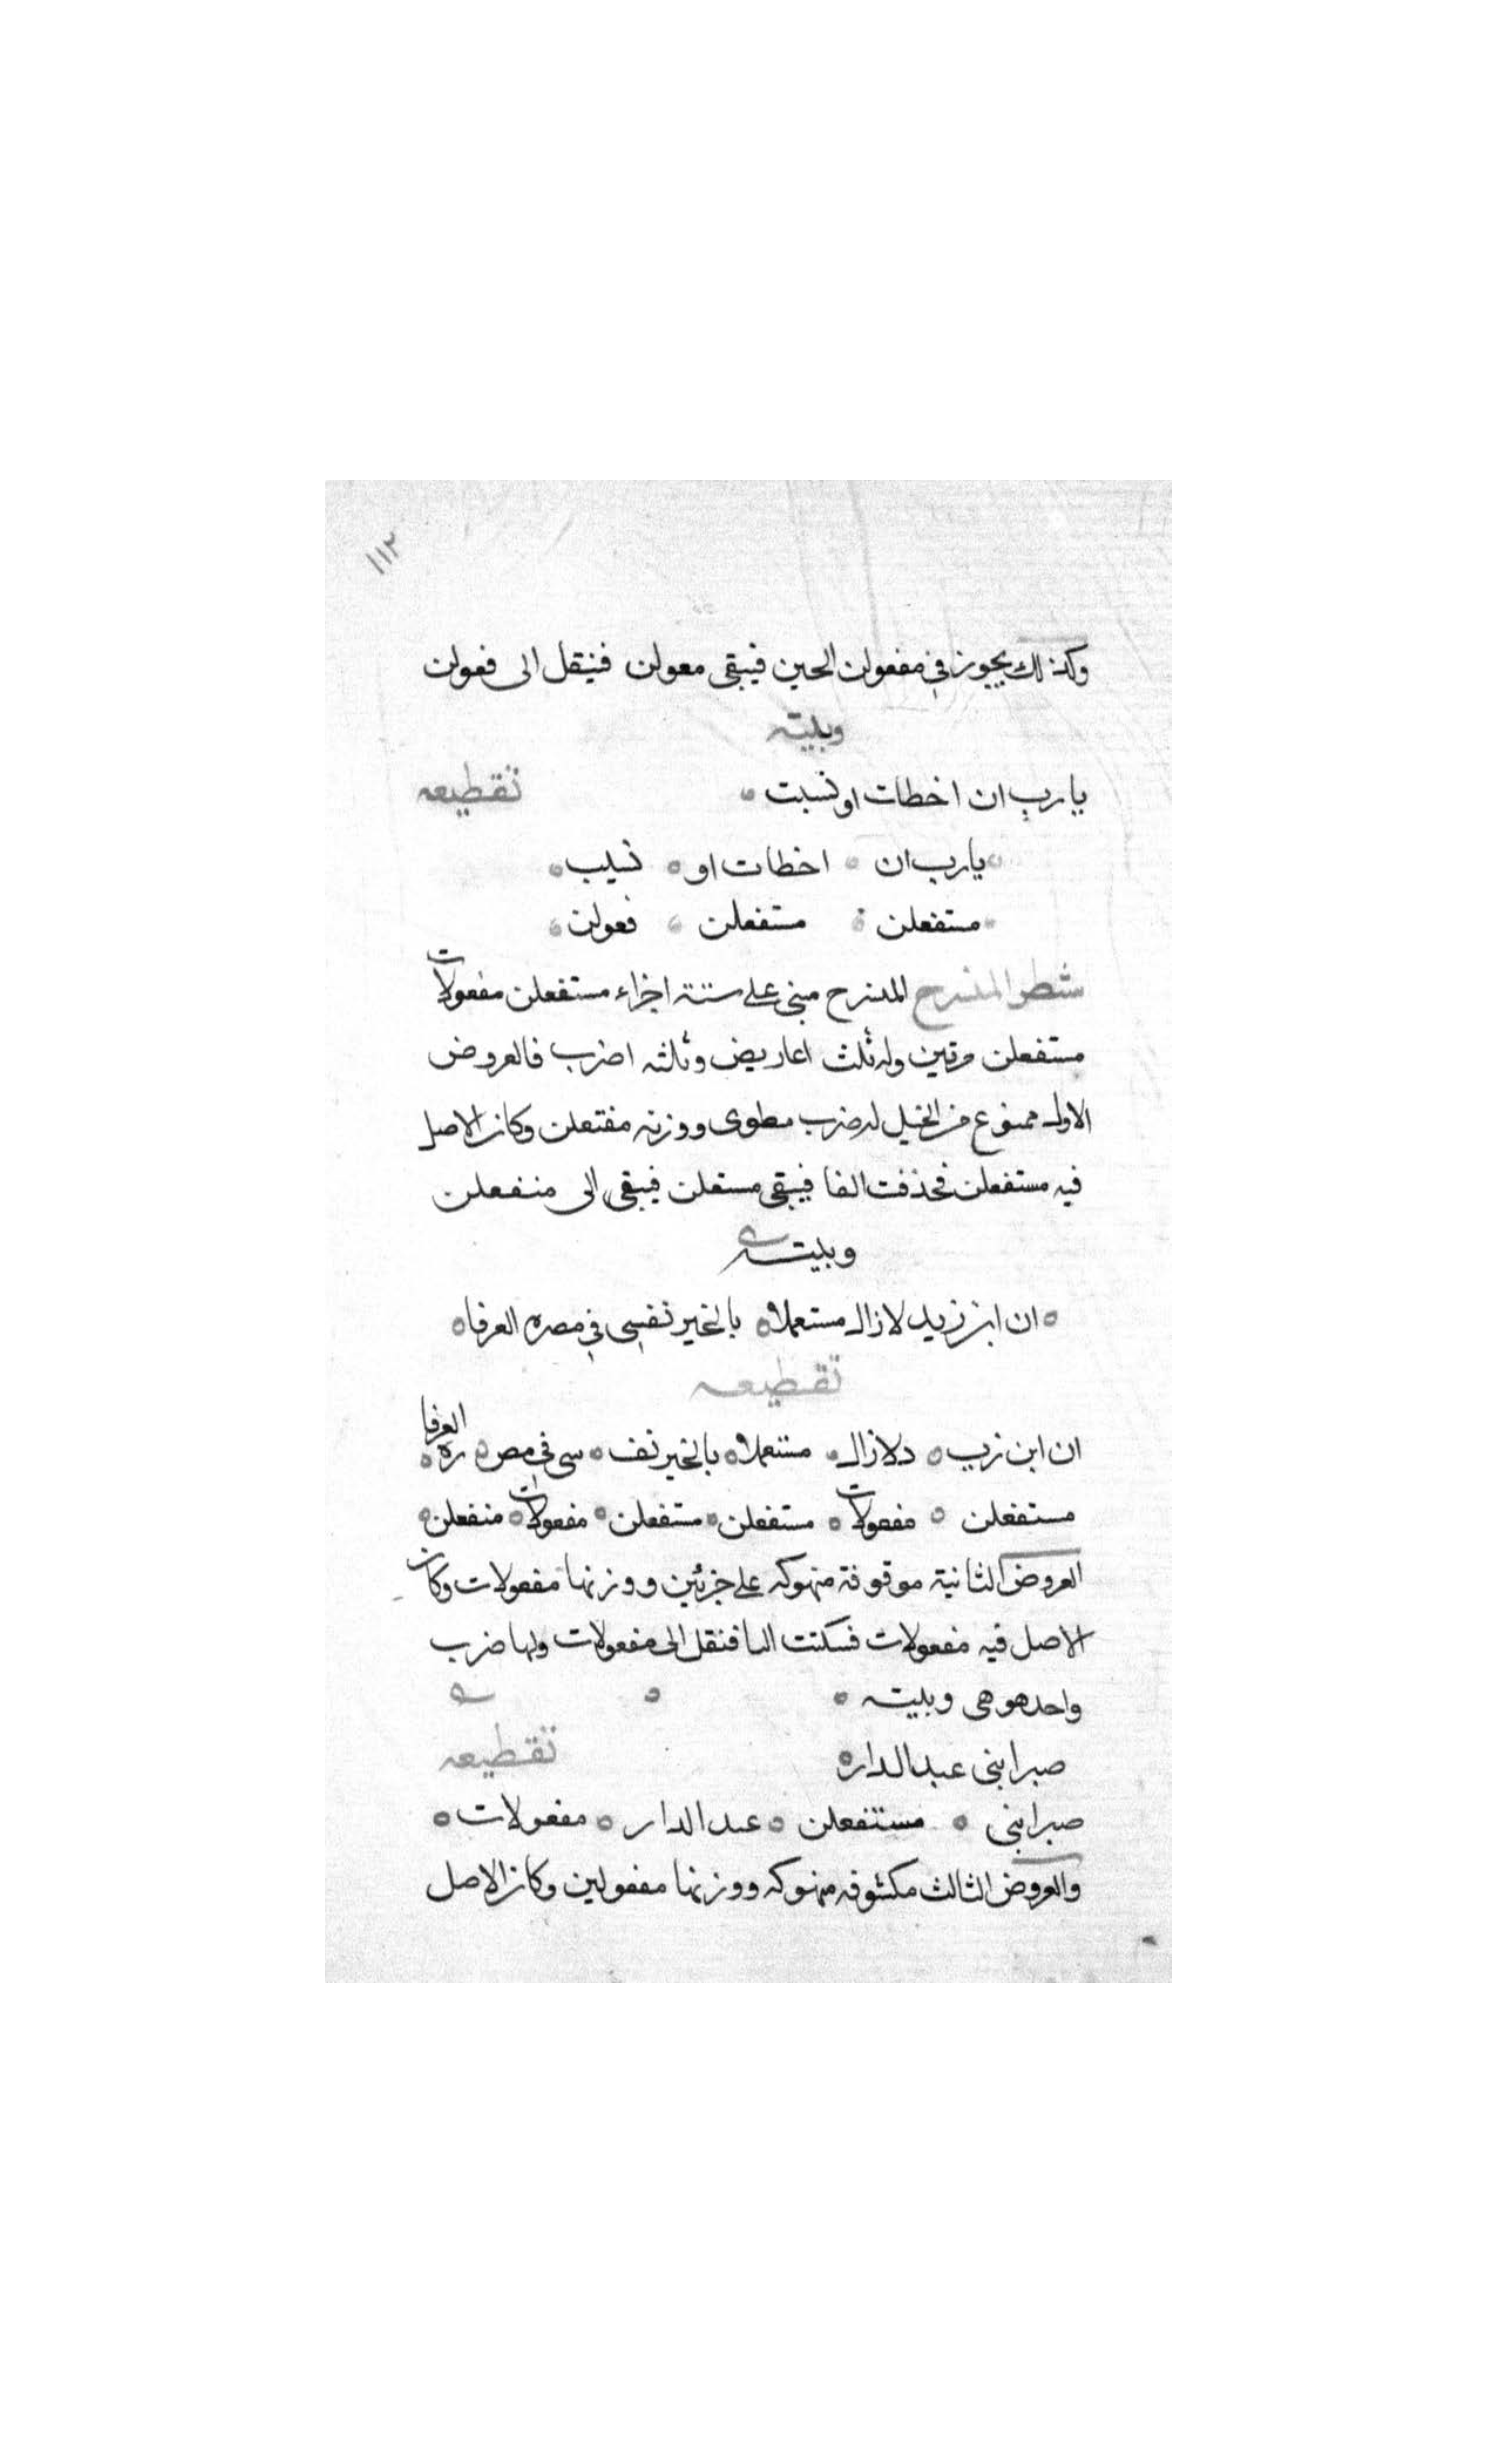 ١١٢
وكذلك يجوز في مفعولن الحين فيبقى معولن فينقل الى فعولن
وبيته
يا رب ان اخطات او نسيت تقطيعه
يا رب ان اخطات او نسيت
مستفعلن مستفعلن فعولن
شطر المنسرح المنسرح مبنى على ستة اجزاء مستفعلن مفعولات
مستفعلن مرتين وله ثلث اعاريض وثلثه اضرب فالعروض
الاولى ممنوع من الخبل له ضرب مطوى ووزنه مفتعلن وكان الاصل
فيه مستفعلن فحذفت الفا فيبقى مستعلن فيبقى الى منفعلن
وبيته
ان ابن زيد لا زال مستعملا بالخير نفسى في مصره العرفا
تقطيعه
ان ابن زيد دلا زال مستعملا بالخير نف سى في مص ره العرفا
مستفعلن مفعولات مستفعلن مستفعلن مفعولات منفعلن
العروض الثانية موقوفة منهوكه على جزئين ووزنها مفعولات وكان
الاصل فيه مفعولات فسكنت التا فنقل الى مفعولات ولها ضرب
واحد هو هى وبيته
صبرا بنى عبد الدار تقطيعه
صبرا بنى مستفعلن عبد الدار مفعولات
والعروض الثالث مكشوفه منهوكه ووزنها مفعولين وكان الاصل